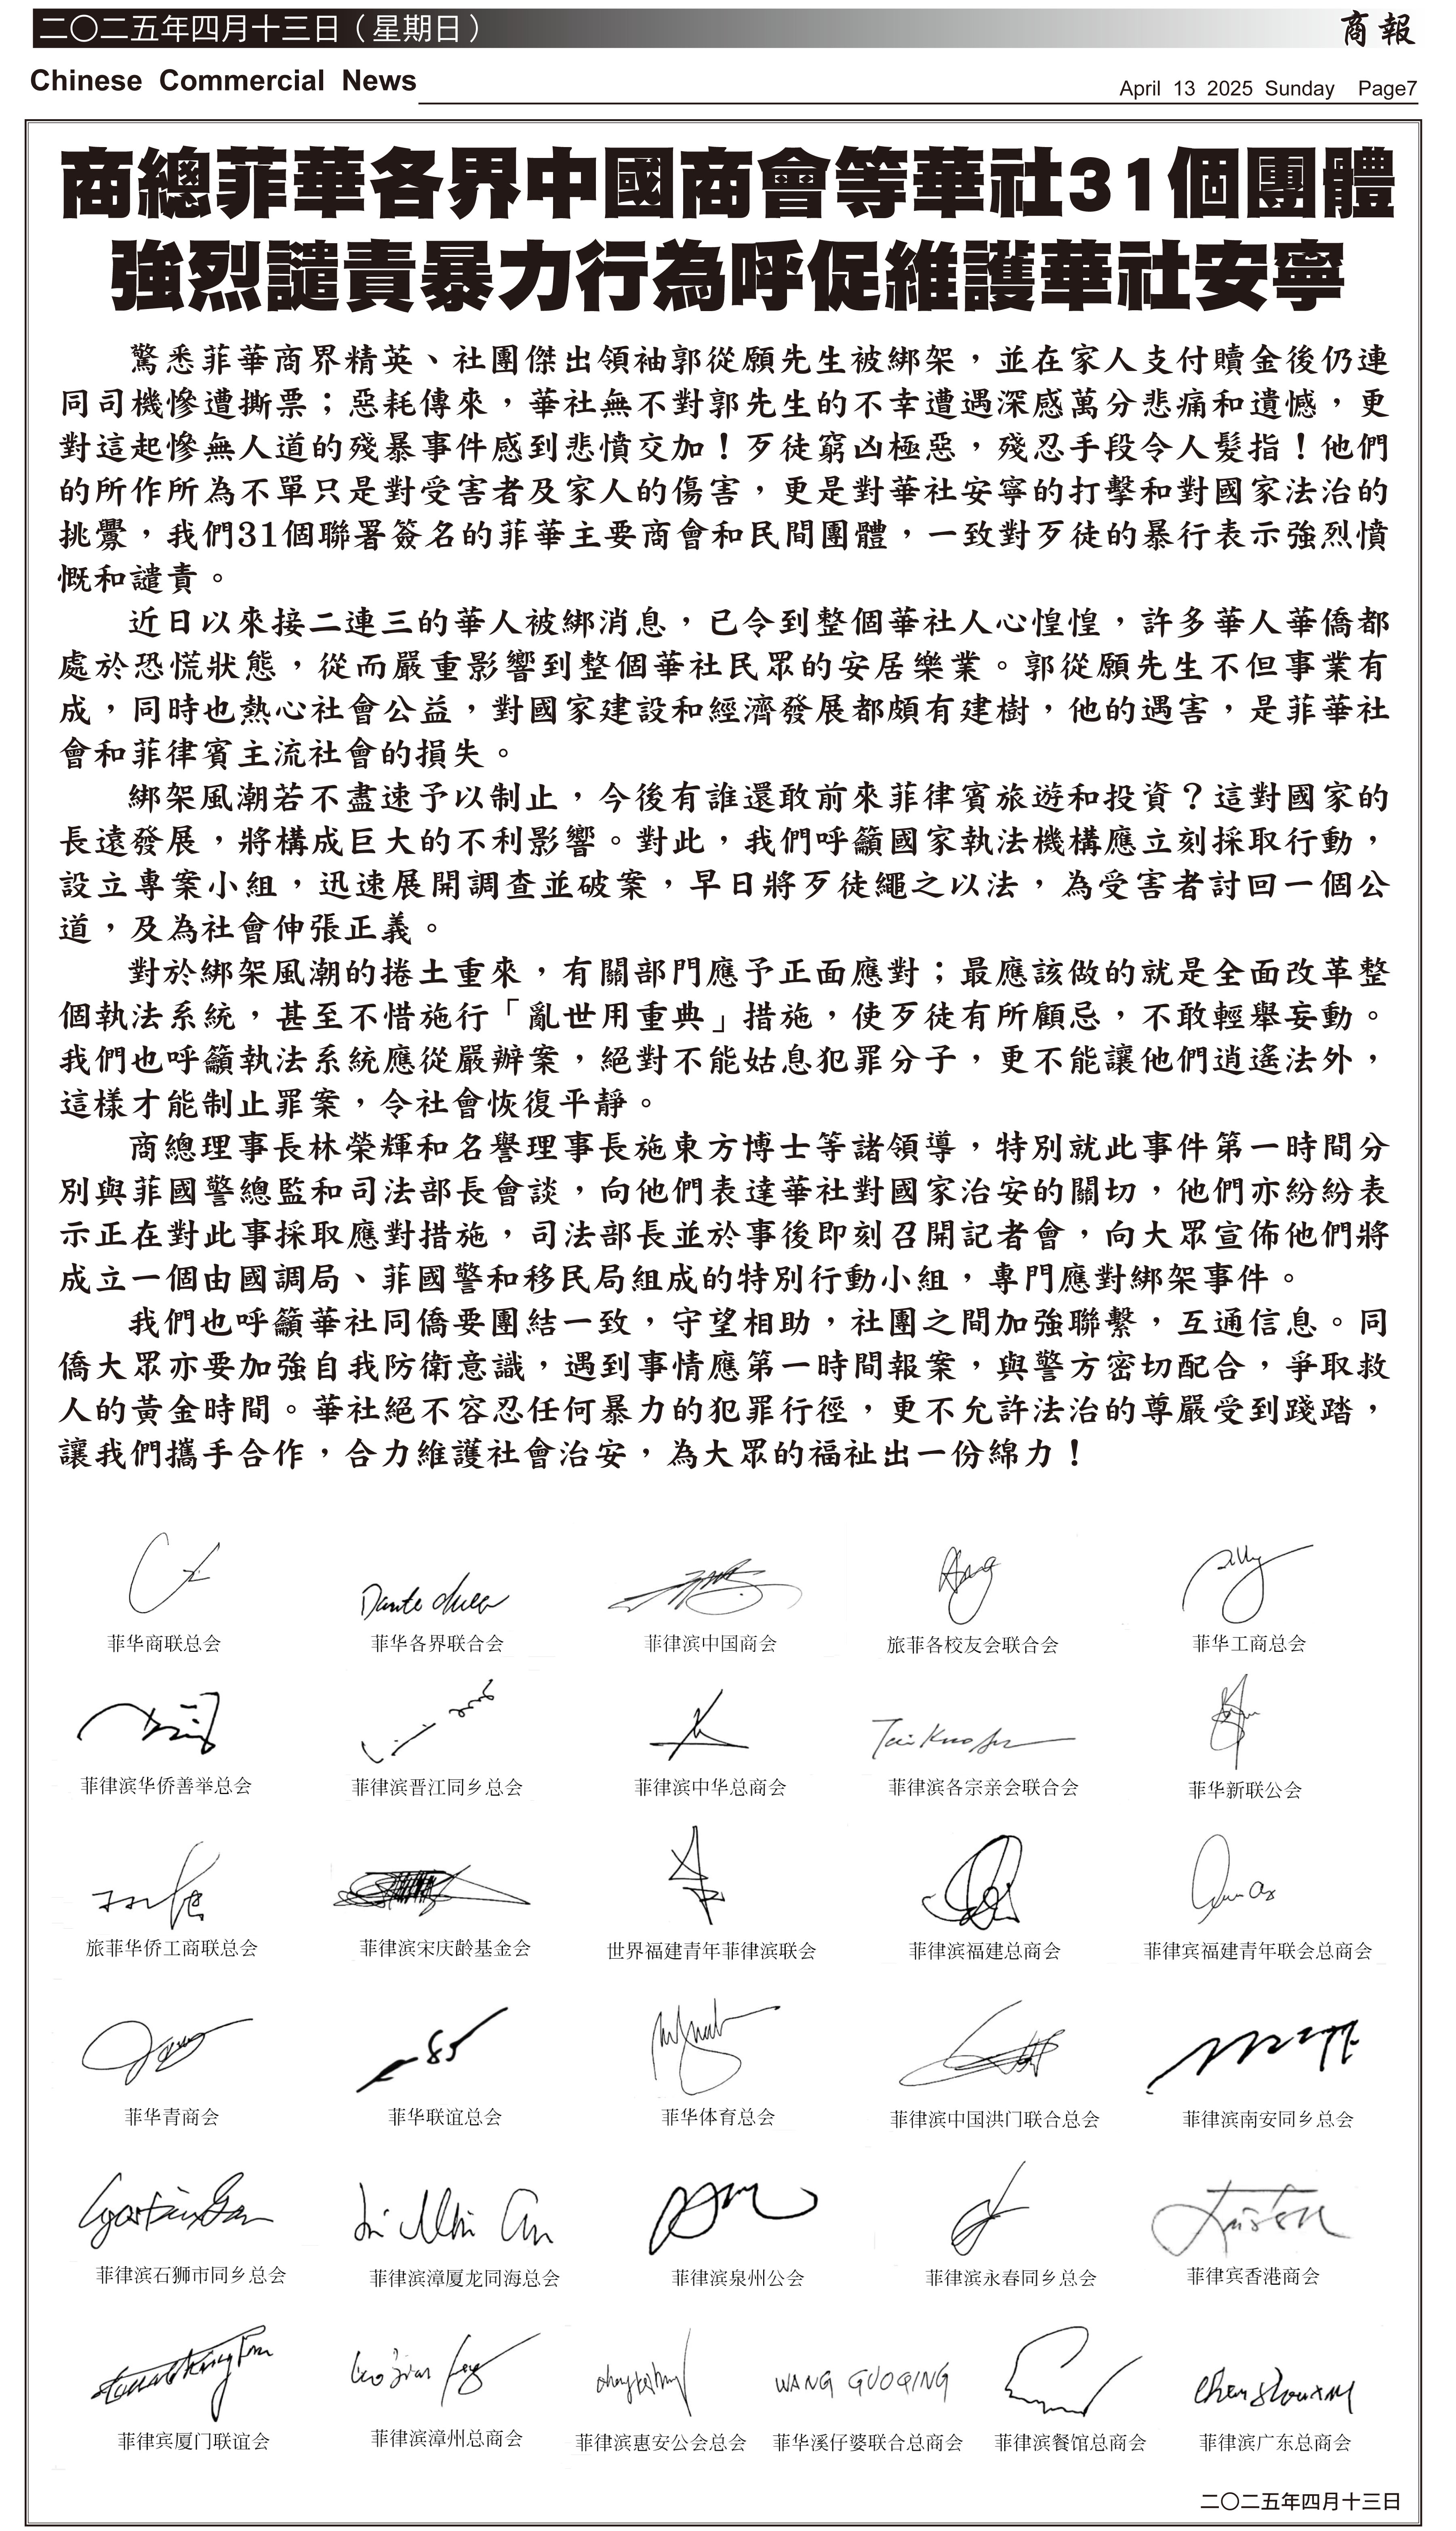 二〇二五年四月十三日（星期日）
商報
Chinese Commercial News
April 13 2025 Sunday Page7
商總菲華各界中國商會等華社31個團體
強烈譴責暴力行為呼促維護華社安寧
驚悉菲華商界精英、社團傑出領袖郭從願先生被綁架，並在家人支付贖金後仍連
同司機慘遭撕票；惡耗傳來，華社無不對郭先生的不幸遭遇深感萬分悲痛和遺憾，更
對這起慘無人道的殘暴事件感到悲憤交加！歹徒窮凶極惡，殘忍手段令人髮指！他們
的所作所為不單只是對受害者及家人的傷害，更是對華社安寧的打擊和對國家法治的
挑釁，我們31個聯署簽名的菲華主要商會和民間團體，一致對歹徒的暴行表示強烈憤
慨和譴責。
近日以來接二連三的華人被綁消息，已令到整個華社人心惶惶，許多華人華僑都
處於恐慌狀態，從而嚴重影響到整個華社民眾的安居樂業。郭從願先生不但事業有
成，同時也熱心社會公益，對國家建設和經濟發展都頗有建樹，他的遇害，是菲華社
會和菲律賓主流社會的損失。
綁架風潮若不盡速予以制止，今後有誰還敢前來菲律賓旅遊和投資？這對國家的
長遠發展，將構成巨大的不利影響。對此，我們呼籲國家執法機構應立刻採取行動，
設立專案小組，迅速展開調查並破案，早日將歹徒繩之以法，為受害者討回一個公
道，及為社會伸張正義。
對於綁架風潮的捲土重來，有關部門應予正面應對；最應該做的就是全面改革整
個執法系統，甚至不惜施行「亂世用重典」措施，使歹徒有所顧忌，不敢輕舉妄動。
我們也呼籲執法系統應從嚴辦案，絕對不能姑息犯罪分子，更不能讓他們逍遙法外，
這樣才能制止罪案，令社會恢復平靜。
商總理事長林榮輝和名譽理事長施東方博士等諸領導，特別就此事件第一時間分
別與菲國警總監和司法部長會談，向他們表達華社對國家治安的關切，他們亦紛紛表
示正在對此事採取應對措施，司法部長並於事後即刻召開記者會，向大眾宣佈他們將
成立一個由國調局、菲國警和移民局組成的特別行動小組，專門應對綁架事件。
我們也呼籲華社同僑要團結一致，守望相助，社團之間加強聯繫，互通信息。同
僑大眾亦要加強自我防衛意識，遇到事情應第一時間報案，與警方密切配合，爭取救
人的黃金時間。華社絕不容忍任何暴力的犯罪行徑，更不允許法治的尊嚴受到踐踏，
讓我們攜手合作，合力維護社會治安，為大眾的福祉出一份綿力！
菲华商联总会 菲华各界联合会 菲律滨中国商会 旅菲各校友会联合会 菲华工商总会
菲律滨华侨善举总会 菲律滨晋江同乡总会 菲律滨中华总商会 菲律滨各宗亲会联合会 菲华新联公会
旅菲华侨工商联总会 菲律滨宋庆龄基金会 世界福建青年菲律滨联会 菲律滨福建总商会 菲律宾福建青年联会总商会
菲华青商会 菲华联谊总会 菲华体育总会 菲律滨中国洪门联合总会 菲律滨南安同乡总会
菲律滨石狮市同乡总会 菲律滨漳厦龙同海总会 菲律滨泉州公会 菲律滨永春同乡总会 菲律宾香港商会
WANG GUOQING
菲律宾厦门联谊会 菲律滨漳州总商会 菲律滨惠安公会总会 菲华溪仔婆联合总商会 菲律滨餐馆总商会 菲律滨广东总商会
二〇二五年四月十三日